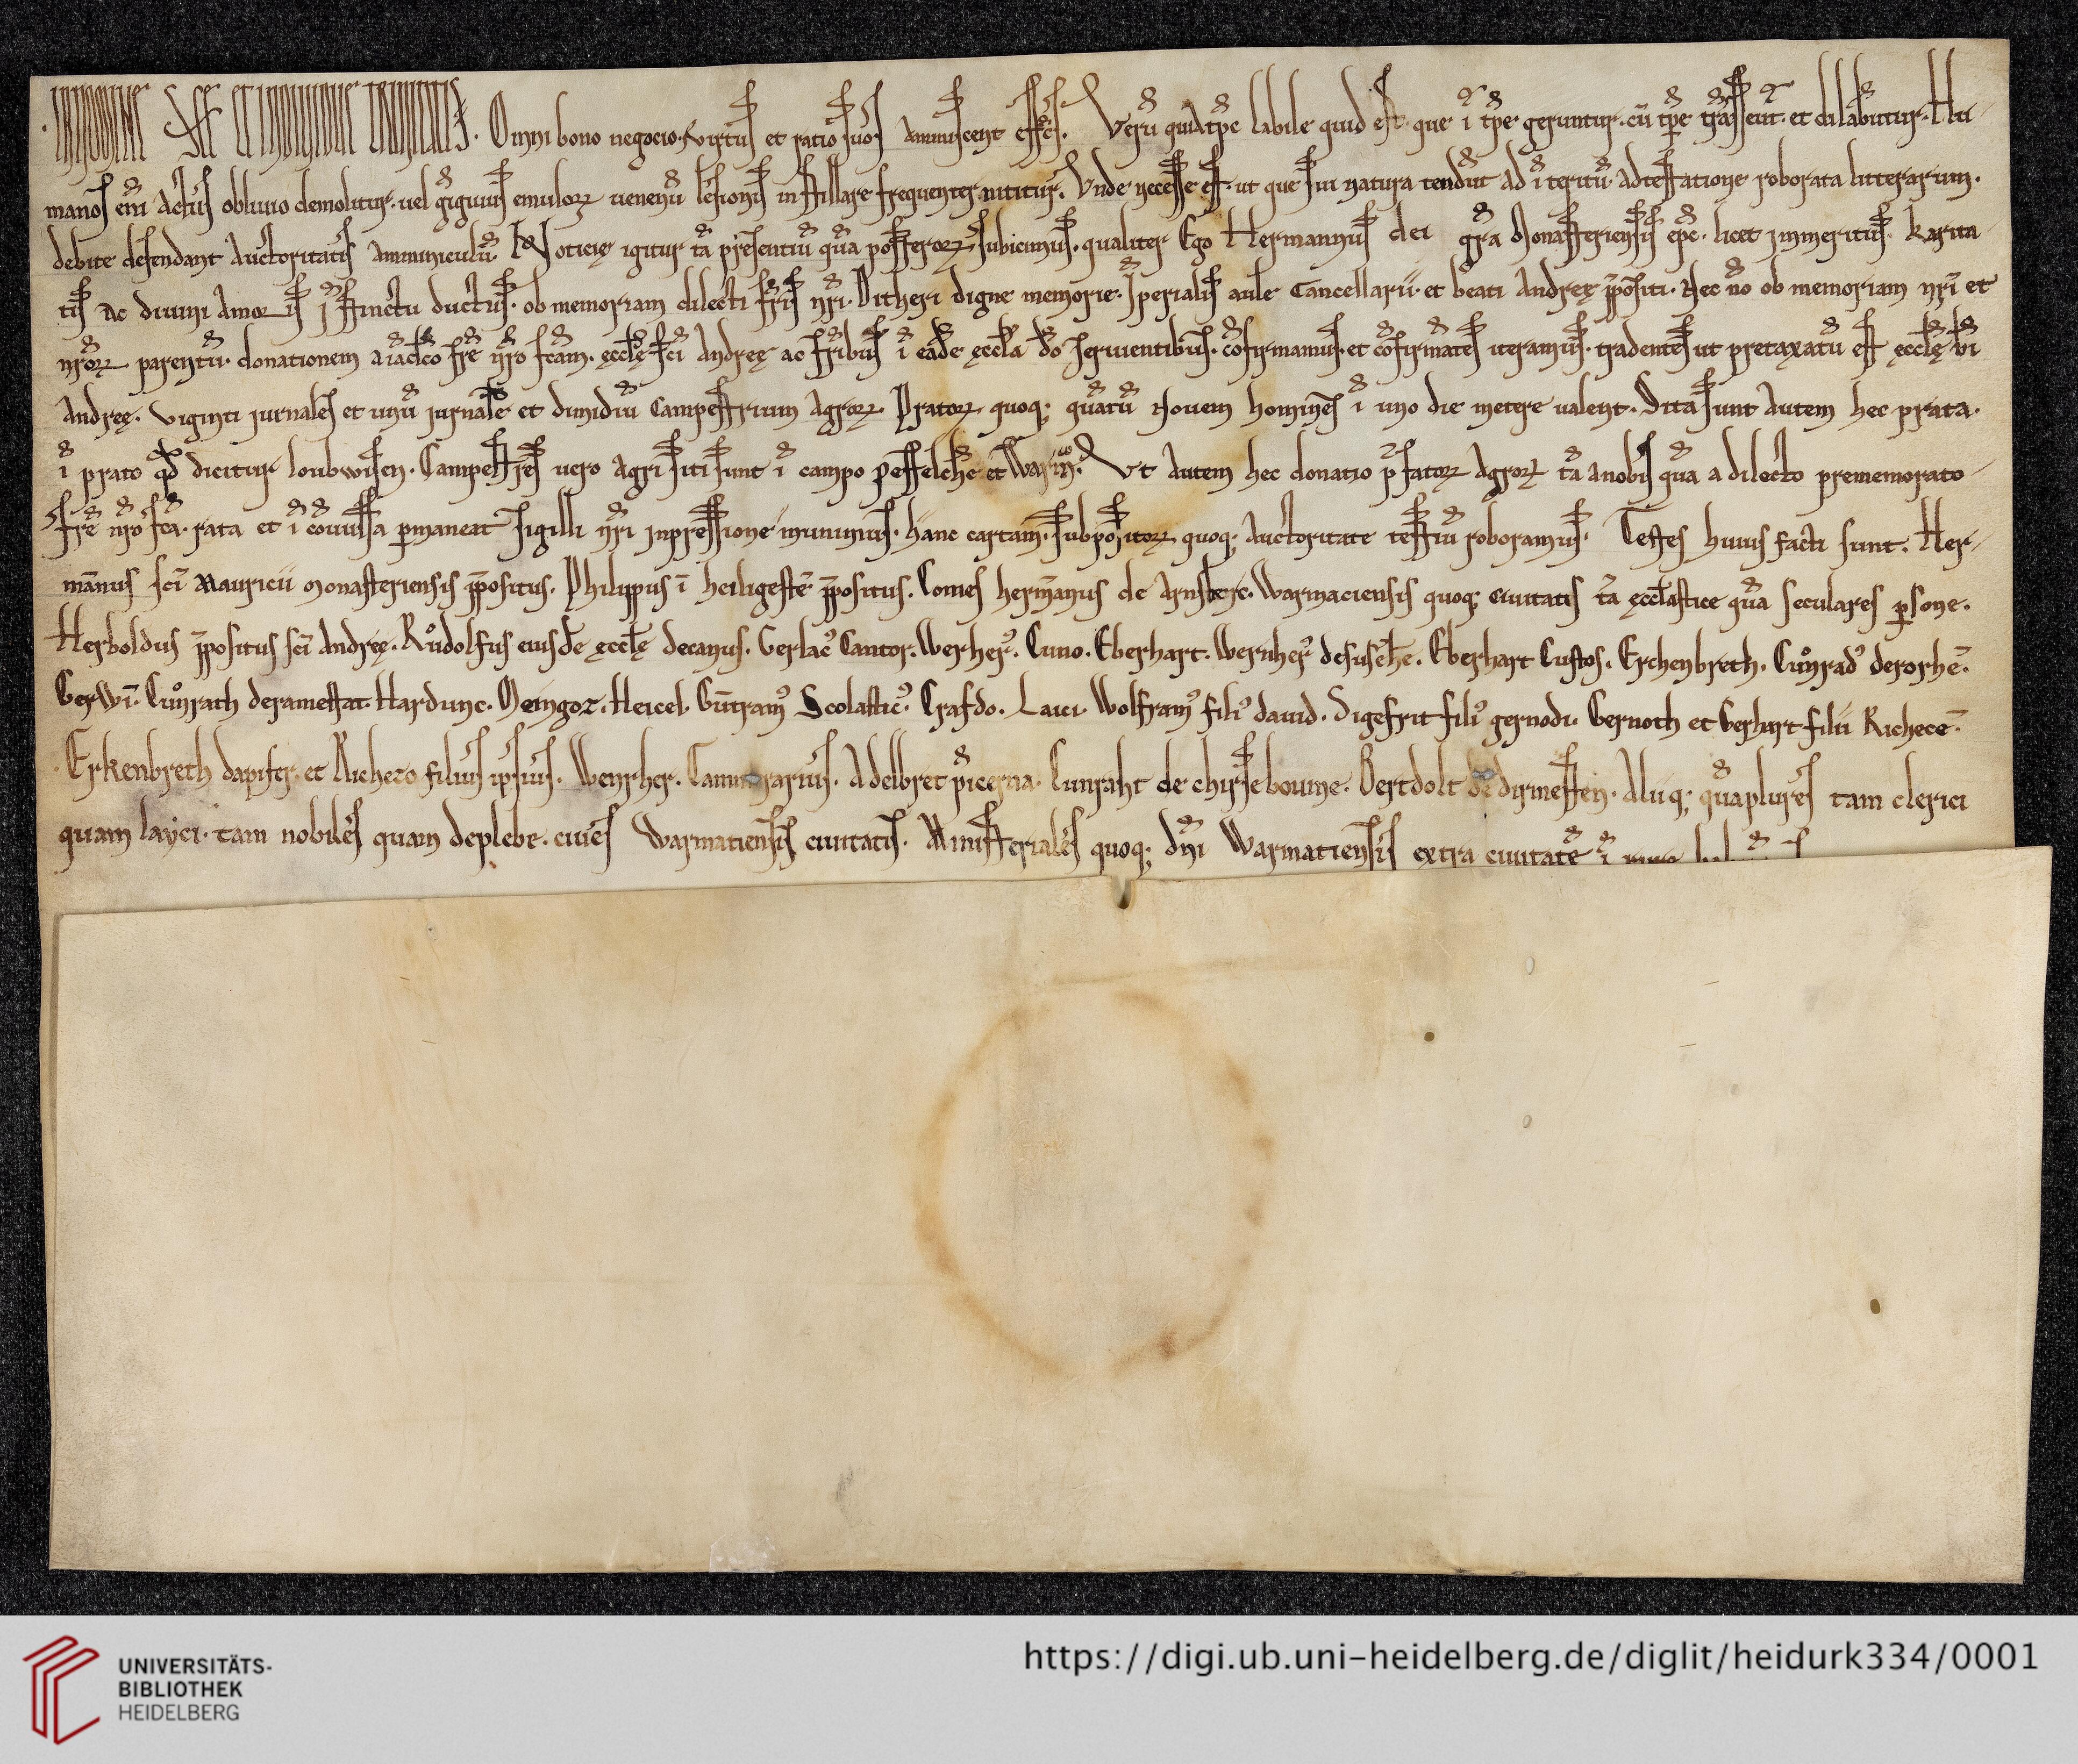 IN NOMINE SCE ET INDIVIDUE TRINITATIS. Omni bono negocio. virtus et ratio suos amministrent effcs. Verū quia tp̄c labile quid est. que ī tp̄e geruntur. cū tp̄e trāsseūt. et dilabūtur. Hu-
manos eni actus oblivio demolitur. uel emulorꝝ uenenū lesionis instillare frequenter nititur. Vnde necesse est. ut que sui natura tendūt ad īteritū. adtestatione roborata litterarum.
debite defendant auctoritatis amminiculū. Noticię igitur tā presentiū quā posterorꝝ subicimus. qualiter Ego Hermannus dei gr̄a Monasteriensis ep̄c. licet immeritus. karita-
tis ac diuini amoris īstinctu ductus. ob memoriam dilecti fr̄is nr̄i. Ditheri digne memorie. Iperialis aule Cancellarii. et beati Andreę p̄positi. Nec nō ob memoriam nr̄i et
nr̄orꝝ parentū. donationem fr̄e nr̄o fcām. ęccl̄ę sc̄i Andreę ac fr̄ibus ī eadē ęccl̄a dō seruientibus. cōfirmamus. et cōfirmātes iteramus. tradentes ut pretaxatū est ęccl̄ę
Andreę. viginti iurnales et unū iurnāle et dimidiū campestrium agrorꝝ. Pratorꝝ quoq; quātū Nouem homines ī uno die metere ualent. Sita sunt autem hec prata.
ī prato qd̄ dicitur loubwisen. Campestres uero agri siti sunt ī campo peffelchē et Vt autem hec donatio p̄fatorꝝ agrorꝝ tā anobis quā a dilecto prememorato
fr̄e nr̄o fcā. rata et ī cōuulsa p̄maneat sigilli nr̄i inpressione munimus. hanc cartam. subpositorꝝ quoq; auctoritate testiū roboramus. Testes huius facti sunt. Her-
mānus sc̄i Mauricii Monasteriensis p̄positus. Philippus ī heiligestē p̄positus. Comes hermānus de Arnsberc. Warmaciensis quoq; ciuitatis tā ęccl̄astice quā seculares p̄sone.
Herboldus p̄positus sc̄i Andreę. Růdolfus eiusdē ęccl̄ę decanus. Gerlac᾽ Cantor. Werher᾽. Cuno. Eberhart. Wernher᾽ Eberhart Custos. Erchenbreth. Cůnrad᾽ derorhē.
Gerwī. Cůnrath deramestat. Hardunc. Meingoz. Heicel. Gūtram᾽ Scolastic᾽. Crafdo. Laici. Wolfram᾽ fili᾽ dauid. Sigefrit fili᾽ gernodi. Gernoth et Gerhart filii Richece.
Erkenbreth dapifer. et Richezo filius ipsius. Wenrher. Cammerarius. Adelbret pīcerna. Cunraht de chirseboume. Bertdolt de dirmesten. Alii q; quāplures tam clerici
quam layci. tam nobiles quam deplebe. ciues Warmatiensis ciuitatis. Ministeriales quoq; dn̄i Warmatiensis extra ciuitatē ī
UNIVERSITÄTS-
BIBLIOTHEK
HEIDELBERG
https://digi.ub.uni-heidelberg.de/diglit/heidurk334/0001